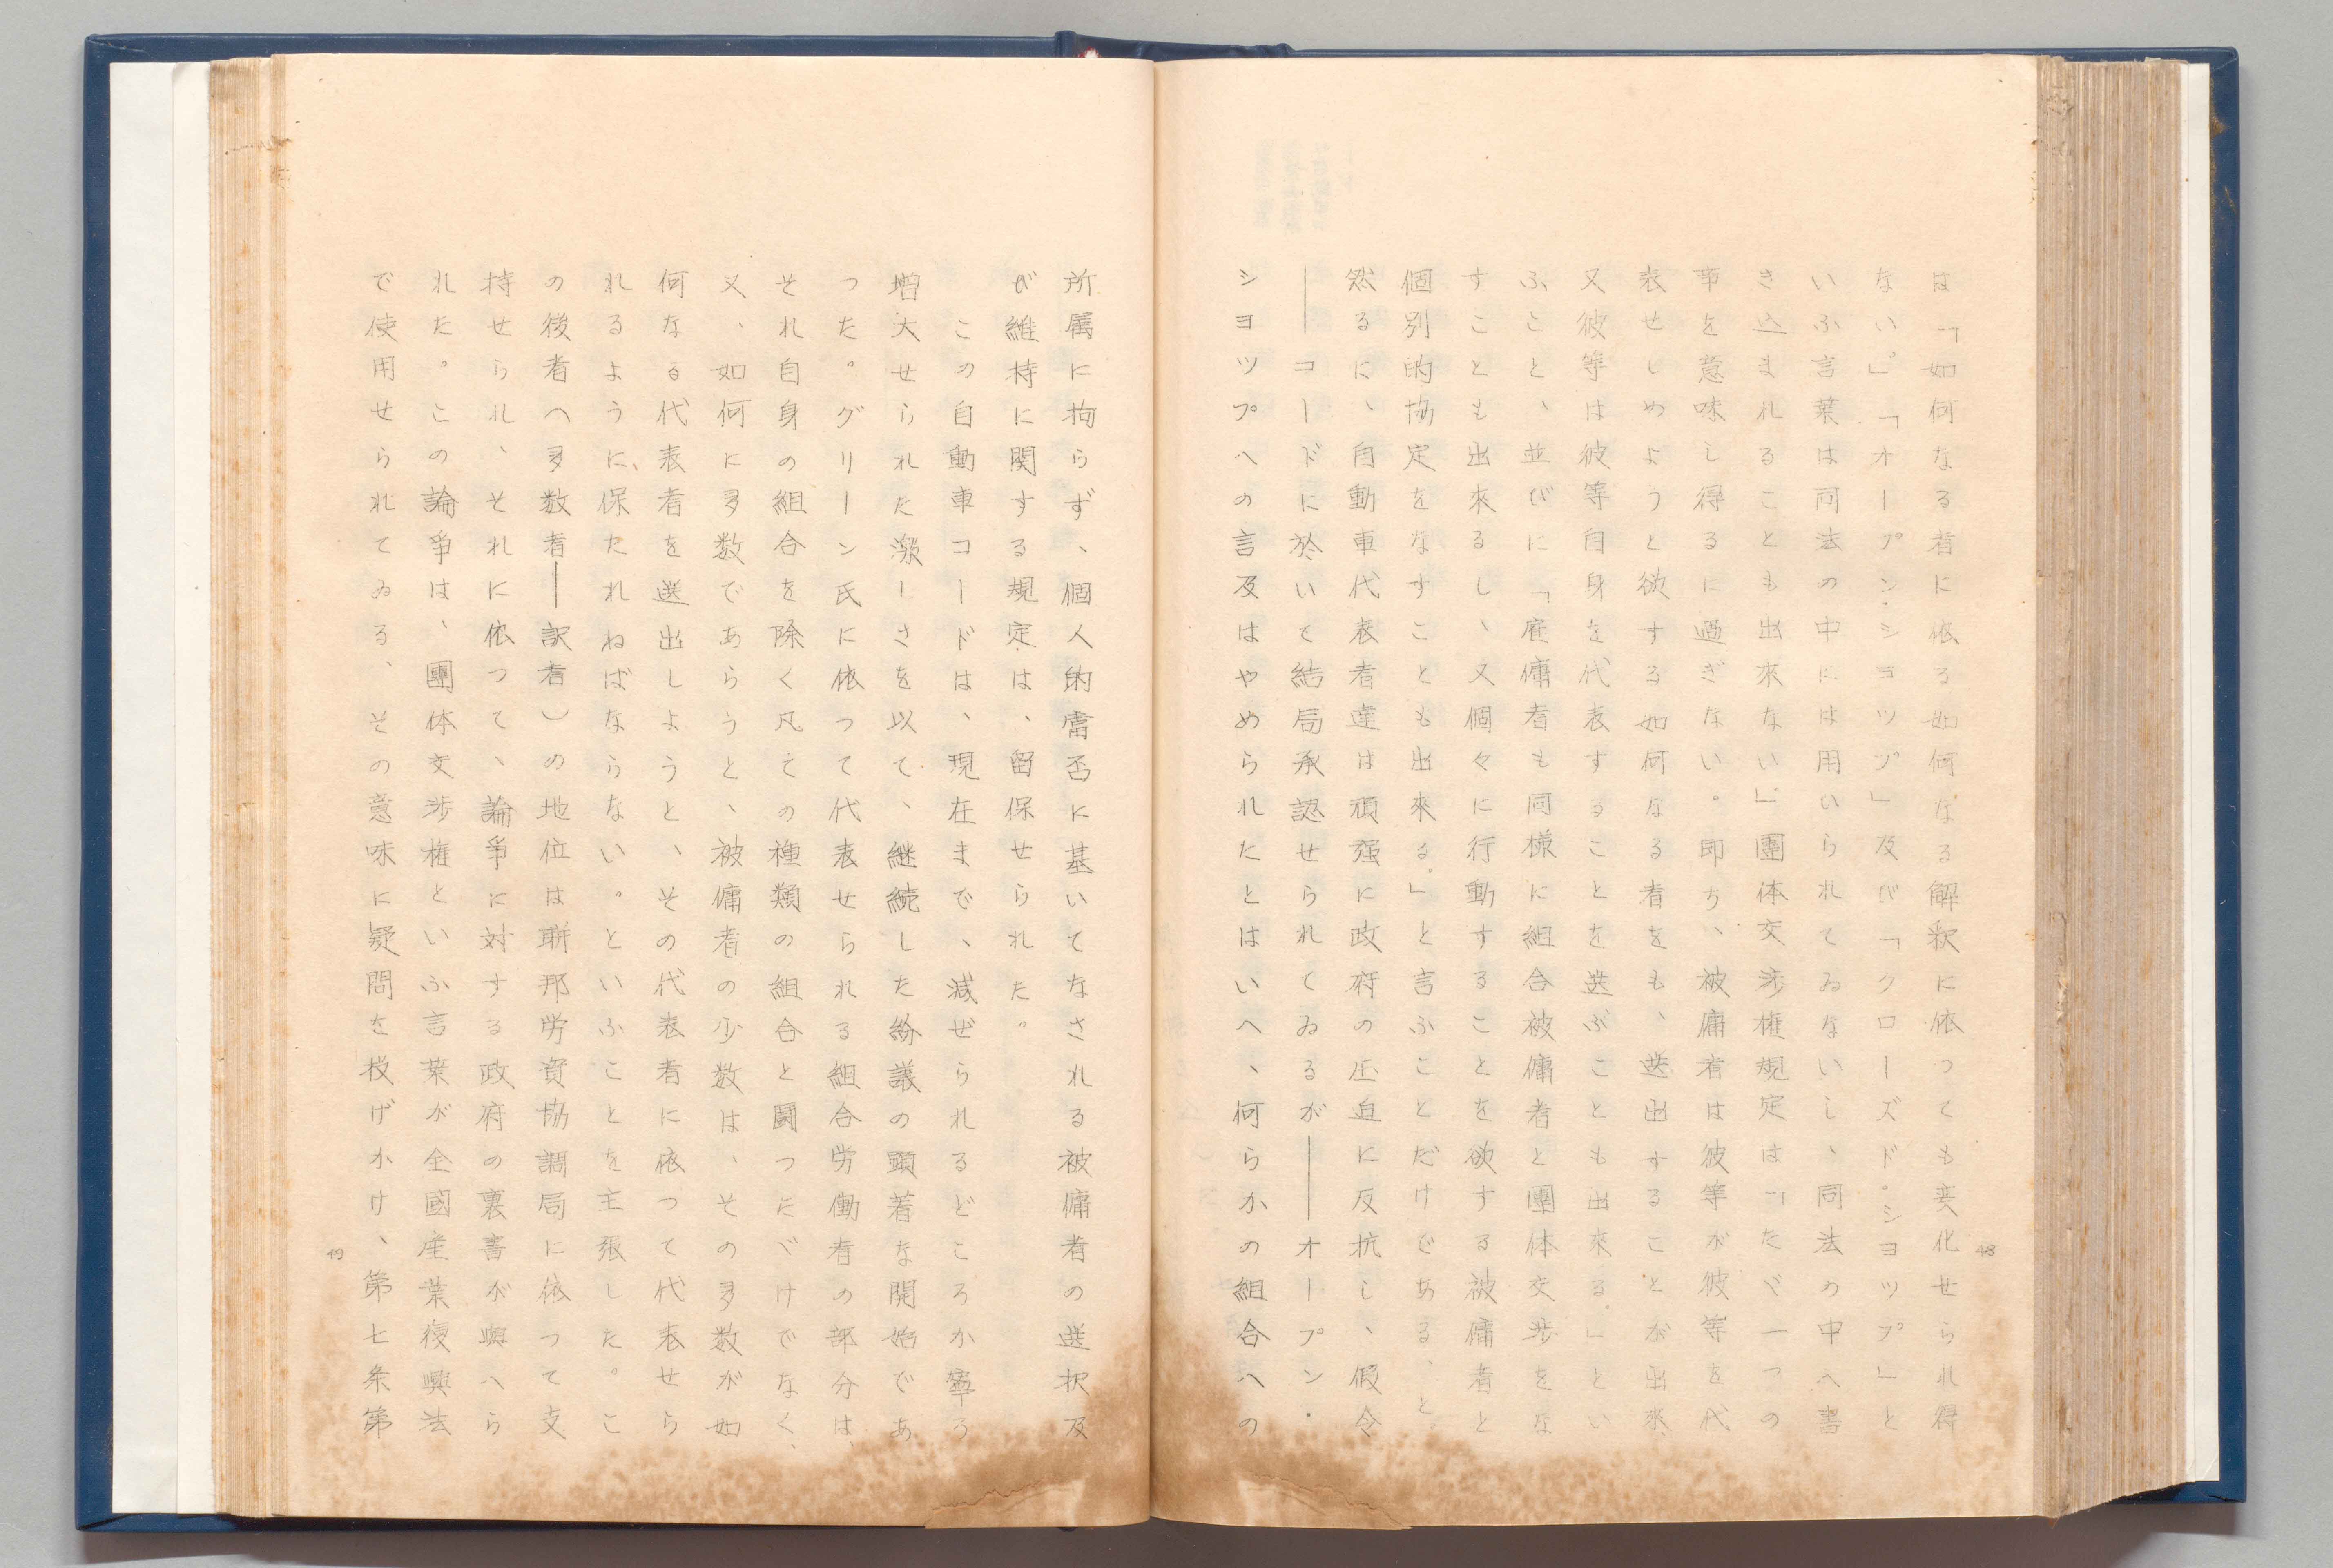 48
は「如何なる者に依る如何なる解釈に依つても変化せられ得
ない。」「オープン・シヨツプ」及び「クローズド・シヨツプ」と
いふ言葉は同法の中には用いられてゐないし、同法の中へ書
き込まれることも出來ない」團体交渉権規定は「たゞ一つの
事を意味し得るに過ぎない。即ち、被傭者は彼等が彼等を代
表せしめようと欲する如何なる者をも、選出することが出來、
又彼等は彼等自身を代表することを選ぶことも出來る。」とい
ふこと、並びに「雇傭者も同様に組合被傭者と團体交渉をな
すことも出來るし、又個々に行動することを欲する被傭者と
個別的協定をなすことも出來る。」と言ふことだけである、と。
然るに、自動車代表者達は頑强に政府の圧迫に反抗し、假令
――コードに於いて結局承認せられてゐるが――オープン・
シヨツプへの言及はやめられたとはいへ、何らかの組合への
所属に拘らず、個人的
に基いてなされる被傭者の選択及
び維持に関する規定は、留保せられた。
この自動車コードは、現在まで、減ぜられるどころか寧ろ
増大せられた激しさを以て、継続した紛議の顕著な開始であ
つた。グリーン氏に依つて代表せられる組合労働者の部分は、
それ自身の組合を除く凡ての種類の組合と闘つたゞけでなく、
又、如何に多数であらうと、被傭者の少数は、その多数が如
何なる代表者を選出しようと、その代表者に依つて代表せら
れるように、保たれねばならない。といふことを主張した。こ
の後者へ多数者――訳者)の地位は聯邦労資協調局に依つて支
持せられ、それに依つて、論爭に対する政府の裏書が與へら
れた。この論爭は、團体交渉権といふ言葉が全國産業復興法
で使用せられてゐる、その意味に疑問を投げかけ、第七条第
49